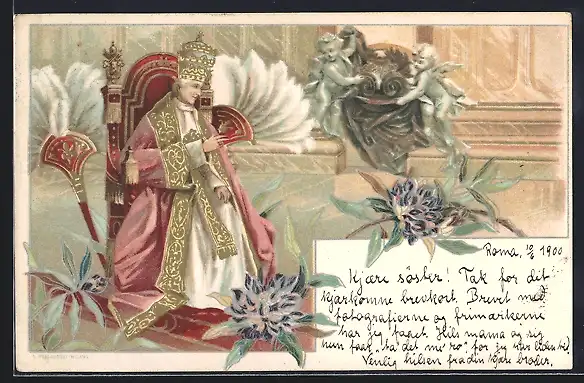 Roma, 12/2 1900
Kjære søster! Tak for dit
kjærkomne brevkort. Brevet med
fotografierne og frimærkerne
har jeg faaet. Hils mama og sig
hun faar "ta det me ro" for jeg
Venlig hilsen fra din kjære broder.